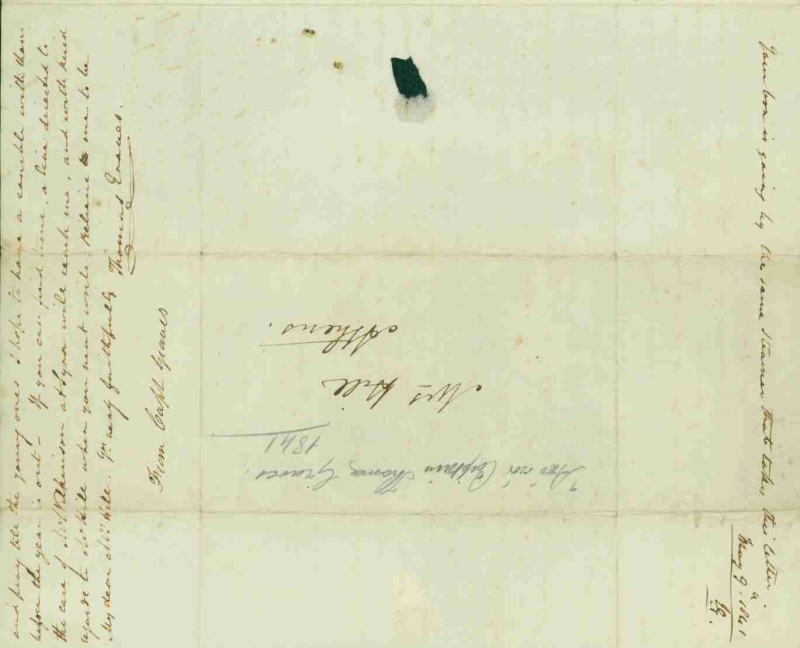 and pray tell the young ones I hope to have a ramble with them
before the year is out – If you can find time, a line directed to
the care of Mr Wilkinson at Syra will reach me, and with kind
regards to Mr Hill when you next write. Believe me to be
My dear Mrs Hill. Yrs very faithfully Thomas Graves.
From Capt Graves
Mrs Hill
Athens.
Captain Thomas Graves.
1841
Your box is going by the same Steamer that takes this letter.
May 9th. 1841